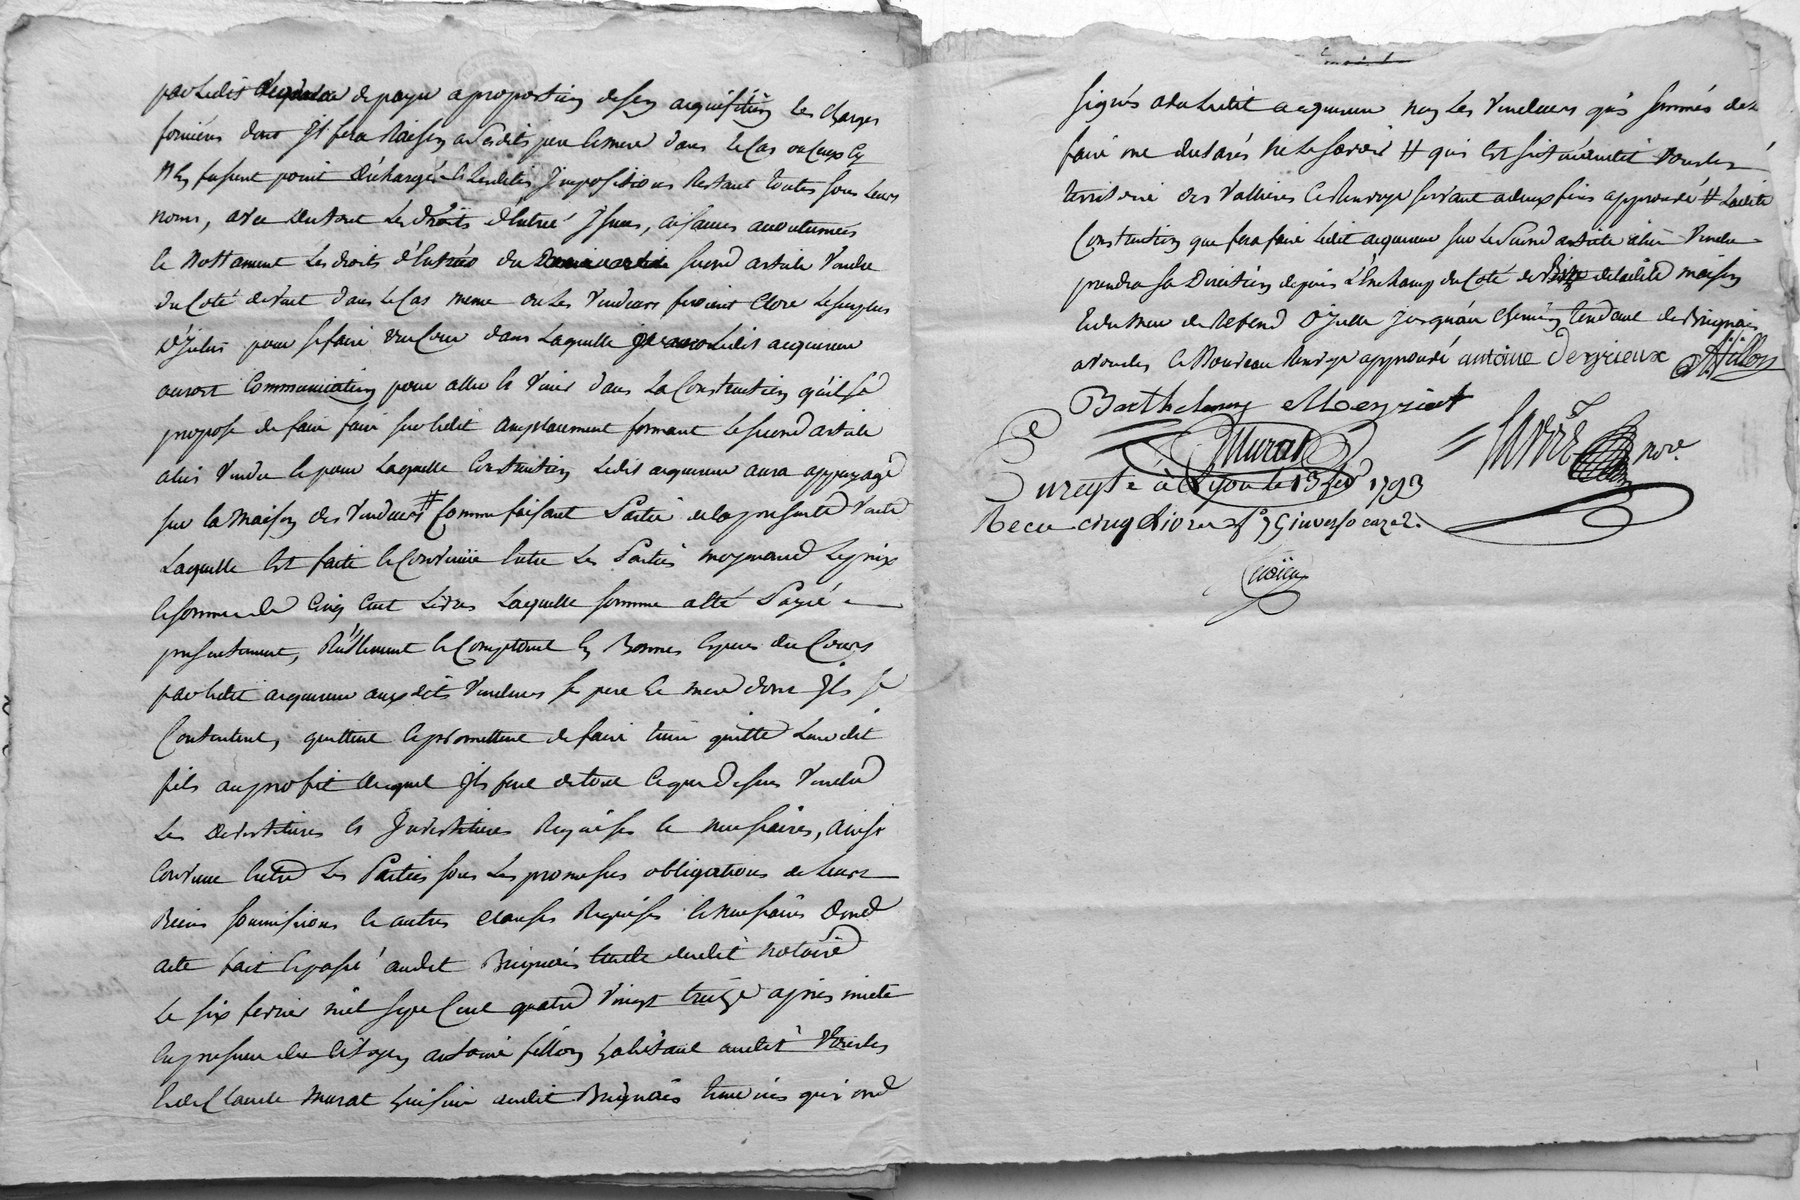 par ledit acquereur de payer a proportion de son acquisition les charges
foncieres dont Il fera Raison a sesdits pere et mere dans le Cas ou ceux cy
N'En fussent point Déchargés et lesdites Impositions Restant toutes sous leurs
noms, avec dutout les droits d'Entrée Issues, aisances accoutumées
et Nottament les droits d'Entrées du second article Vendu
du Coté de vent dans le Cas meme ou les Vendeurs feroient Clore le surplus
D'Iceluy pour se faire une Cour dans Laquelle ledit acquereur
auroit Communication pour aller et Venir dans La Construction qu'il se
propose de faire faire sur ledit emplacement formant le second article
alui Vendu et pour Laquelle Construction Ledit acquereur aura appuyage
sur la maison des Vendeurs # Comme faisant Partie de la presente Vente
Laquelle Est faite et Convenüe Entre Les Parties moyenand Le prix
et somme de Cinq Cent Livres Laquelle somme a Eté Payée
presentement, Réellement et Comptant En Bonnes Especes du Cours
par ledit acquereur auxdits Vendeurs ses pere et mere dont Ils se
Contentent, quittent et promettent de faire tenir quitte Leur dit
fils au profit duquel Ils font de tout ce que Dessus Vendu
Les Devestitures et Investitures Requises et necessaires, ainsi
Convenu Entre Les Parties sous Les promesses obligations de Leurs
Biens soumissions et autres clauses Requises et necessaires Dond
acte fait et passé audit Brignais Etude dudit notaire
Le six fevrier mil sept Cent quatre Vingt treize après midi
En presence du Citoyen antoine fillion habitant audit Vourles
Et de Claude murat huissier audit Brignais temoins qui ond
signés avec Ledit acquereur non Les Vendeurs qui sommés de le
faire ont declarés ne Le savoir # qui Est situé audit Vourles
territoire des Vallieres Ce Renvoye servant a deux fins approuvé # Ladite
Construction que fera faire Ledit acquereur sur Le Second article alui Vendu
prendra sa Direction depuis L'Enchamp du Coté de bize de ladite maison
Et du mur de Refend D'Icelle Jusqu'au chemin tendant de Brignais
a Vourles Ce Nouveau Renvoye approuvé antoine Deyrieux A Fillion
Barthelemy Meyriat
Murat
not.re
Enregistré à Lyon le 13 fev 1793
Recu cinq Livres f° 75 verso caze 2.